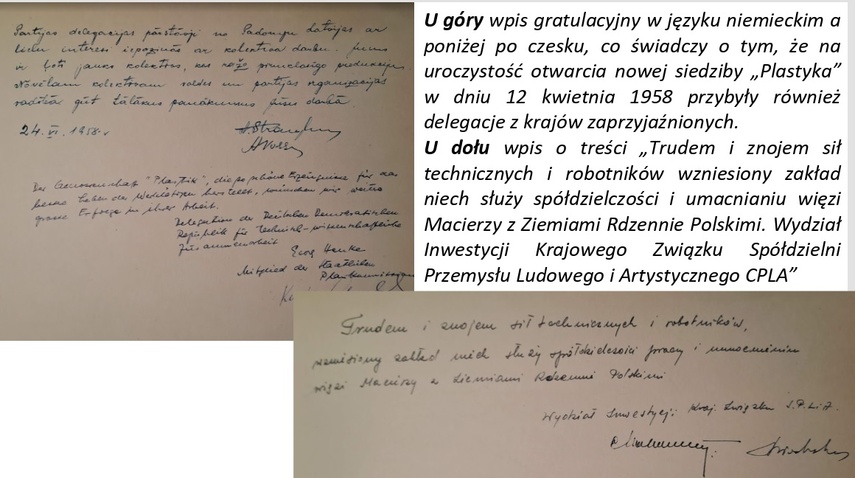 Partijas delegācijas pārstāvji no Padomju Latvijas ar
lielu interesi iepazinās ar kolektīva darbu. Jums
ir ļoti jauks kolektīvs, kas ražo produkciju.
Novēlam kolektīvam valdes un partijas organizācijas
vadībā gūt lielākus panākumus jūsu darbā.
24.VI.1958.
Der Genossenschaft "Plastik", die so schöne Erzeugnisse für
haben, wünschen wir weitere
grosse Erfolge in ihrer Arbeit.
Delegation der Deutschen Demokratischen
Republik für technisch-wissenschaftliche
Zusammenarbeit
Georg Henke
Mitglied der Staatlichen
Plankommission
U góry wpis gratulacyjny w języku niemieckim a
poniżej po czesku, co świadczy o tym, że na
uroczystość otwarcia nowej siedziby „Plastyka”
w dniu 12 kwietnia 1958 przybyły również
delegacje z krajów zaprzyjaźnionych.
U dołu wpis o treści „Trudem i znojem sił
technicznych i robotników wzniesiony zakład
niech służy spółdzielczości i umacnianiu więzi
Macierzy z Ziemiami Rdzennie Polskimi. Wydział
Inwestycji Krajowego Związku Spółdzielni
Przemysłu Ludowego i Artystycznego CPLA”
Trudem i znojem sił technicznych i robotników,
wzniesiony zakład niech służy spółdzielczości pracy i umacnianiu
więzi Macierzy z Ziemiami Rdzennie Polskimi
Wydział Inwestycji Kraj. Związku S.P.L.i A.